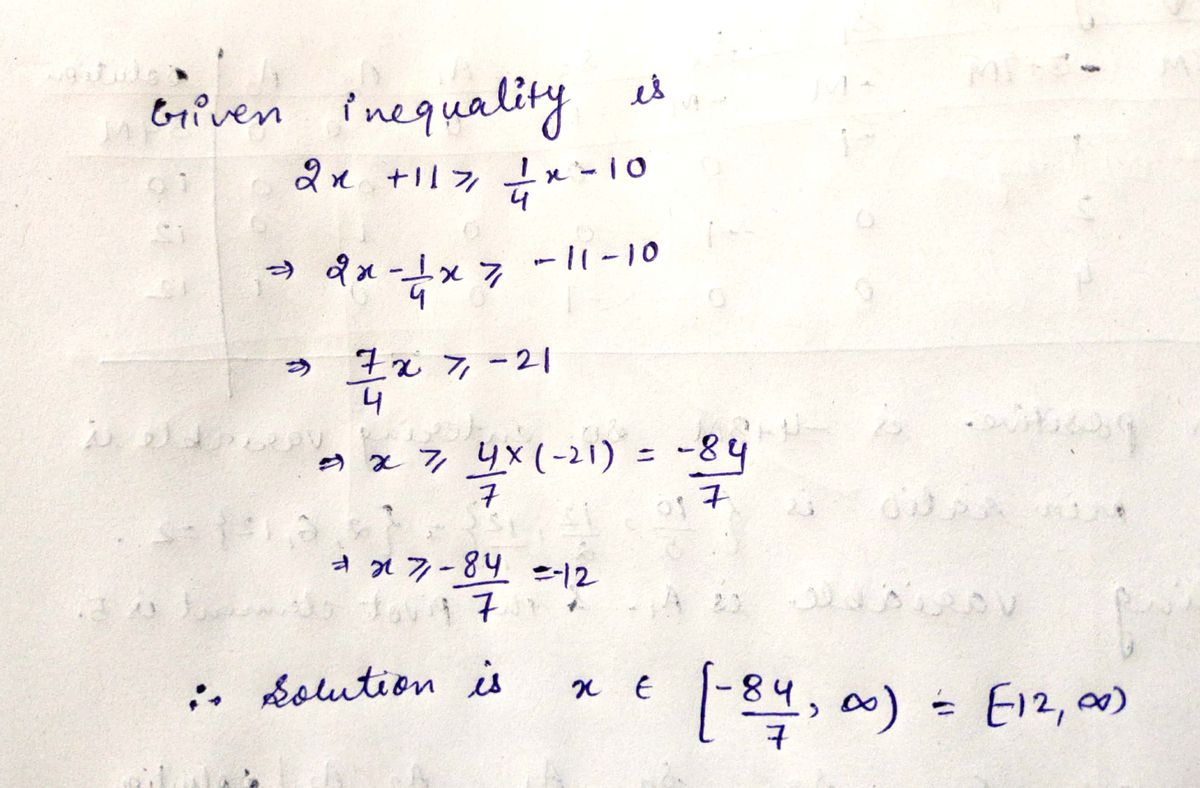 Given inequality is
2x + 11 ⩾ 1/4 x - 10
⇒ 2x - 1/4 x ⩾ -11 - 10
⇒ 7/4 x ⩾ -21
⇒ x ⩾ 4×(-21)/7 = -84/7
⇒ x ⩾ -84/7 = -12
∴ Solution is x ∈ [-84/7, ∞) = [-12, ∞)